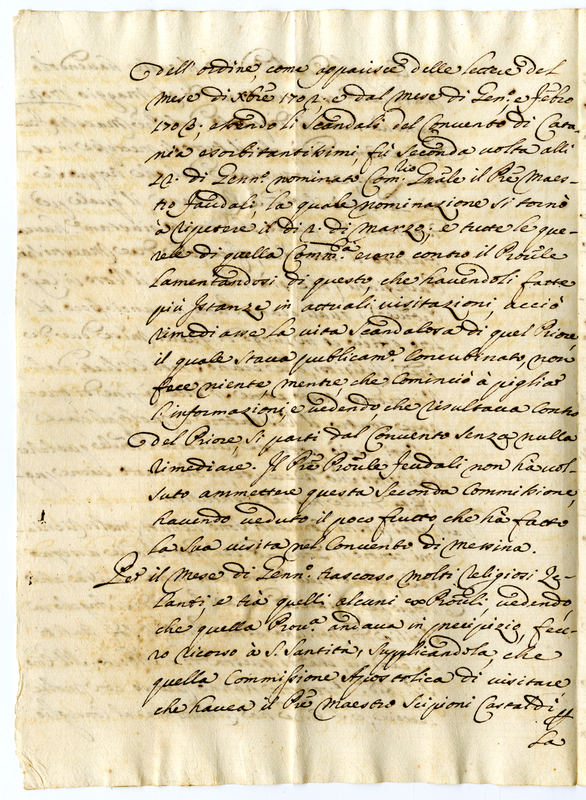 dell'ordine, come apparisce delle lettere del
mese di Xbre 1702. e dal mese di Genn.o e febro
1703; essendo li scandali del Convento di Cata-
nia esorbitantissimi, fù seconda volta alli
22. di Genn.o nominato Com.rio Gnāle il Prē Maes-
tro feudali, la quale nominazione si tornò
à ripetere il di 2. di marzo; e tutte le que-
rele di quella Comm.tà erano contro il Prōule
lamentandosi di questo, che havendoli fatte
più Istanze in actuali visitazioni, acciò
rimediasse la vita scandalosa di quel Priore,
il quale stava publicam.te Concubinato, non
fece niente, mentre, che Cominciò à pigliar
l'informazioni, e vedendo, che risultava contro
del Priore, si partì dal Convento senza nulla
rimediare. Il Prē Prōule feudali non hà vol-
suto ammettere questa seconda Commissione,
havendo veduto il poco frutto, che hà fatto
la sua visita nel Convento di Messina.
Per il mese di Genn.o trascorso molti religiosi Ze-
lanti, e trà quelli alcuni ex Prōuli, vedendo,
che quella Prou.a andava in precipizio, fece-
ro ricorso à S. Santità, supplicandola, che
quella Commissione Apostolica di visitare
che havea il Prē Maestro Scipioni Castaldi,
la